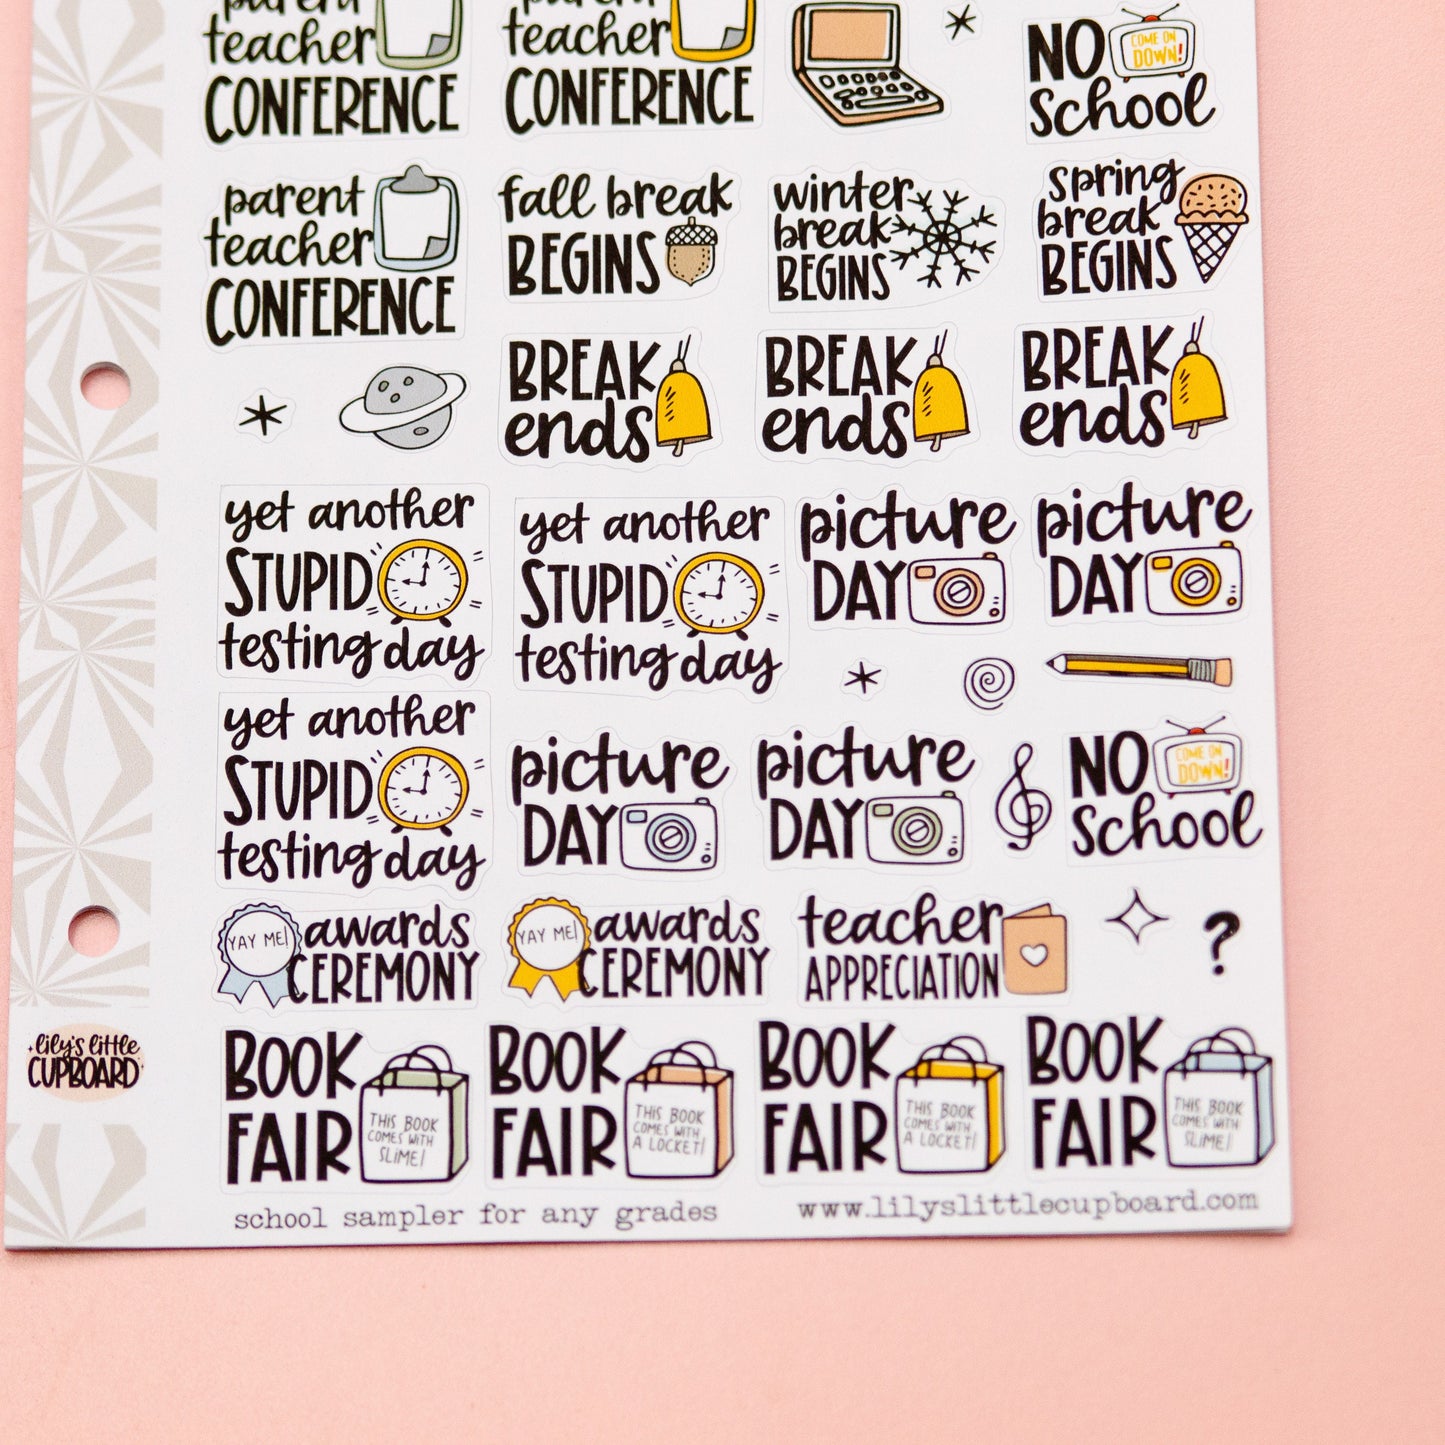 parent
teacher
CONFERENCE
parent
teacher
CONFERENCE
NO
COME ON
DOWN!
school
parent
teacher
CONFERENCE
fall break
BEGINS
winter
break
BEGINS
spring
break
BEGINS
BREAK
ends
BREAK
ends
BREAK
ends
yet another
STUPID
testing day
yet another
STUPID
testing day
picture
DAY
picture
DAY
yet another
STUPID
testing day
picture
DAY
picture
DAY
NO
COME ON
DOWN!
school
YAY ME!
awards
CEREMONY
YAY ME!
awards
CEREMONY
teacher
APPRECIATION
?
lily's little
CUPBOARD
BOOK
FAIR
THIS BOOK
COMES WITH
SLIME!
BOOK
FAIR
THIS BOOK
COMES WITH
A LOCKET!
BOOK
FAIR
THIS BOOK
COMES WITH
A LOCKET!
BOOK
FAIR
THIS BOOK
COMES WITH
SLIME!
school sampler for any grades
www.lilyslittlecupboard.com